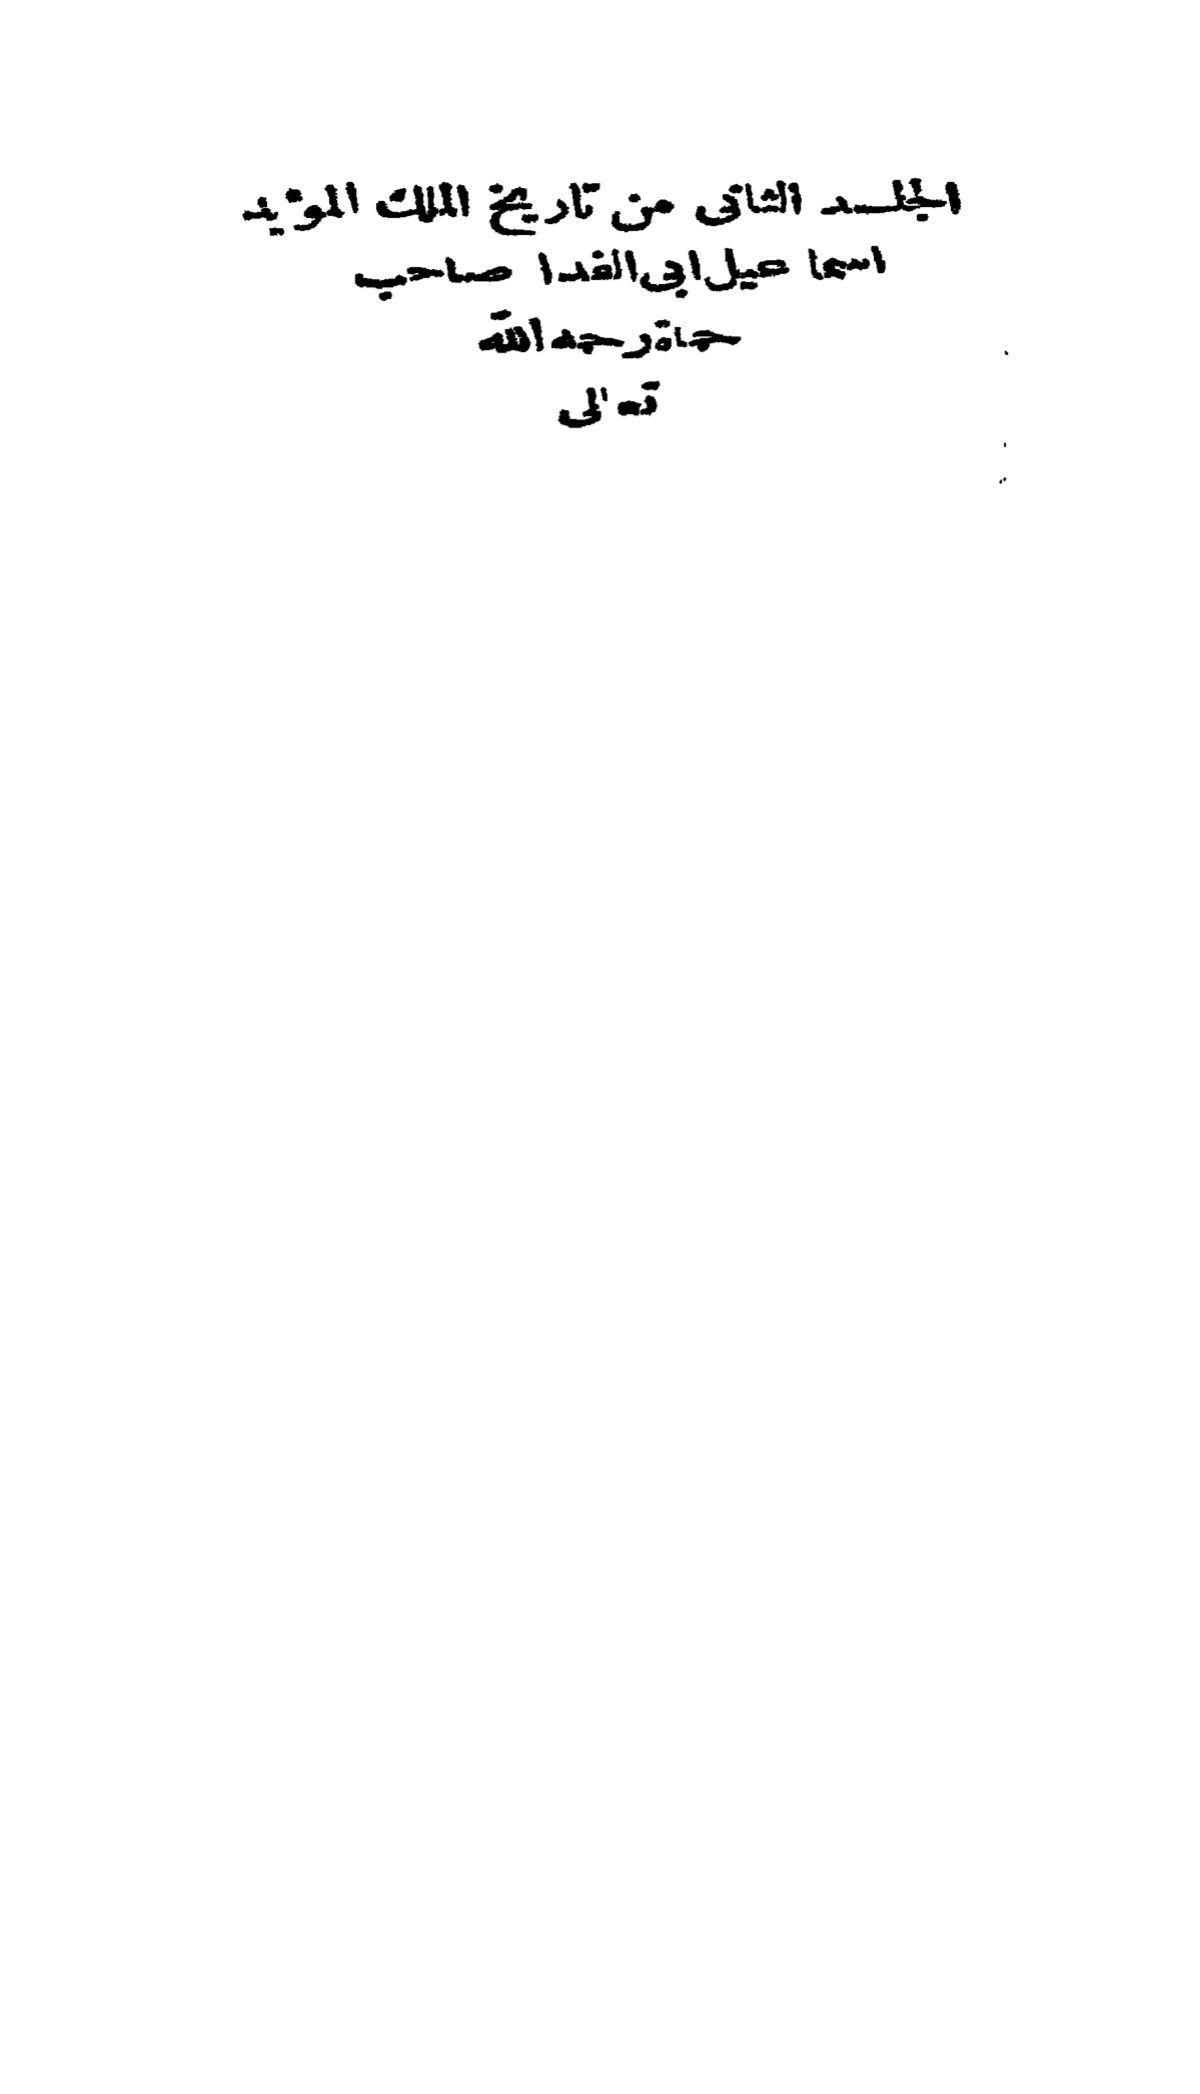 الجلـــد الثانى من تاريخ الملك المؤيد
اسماعيل ابى الفدا صاحب
حماة رحمه الله
تعالى